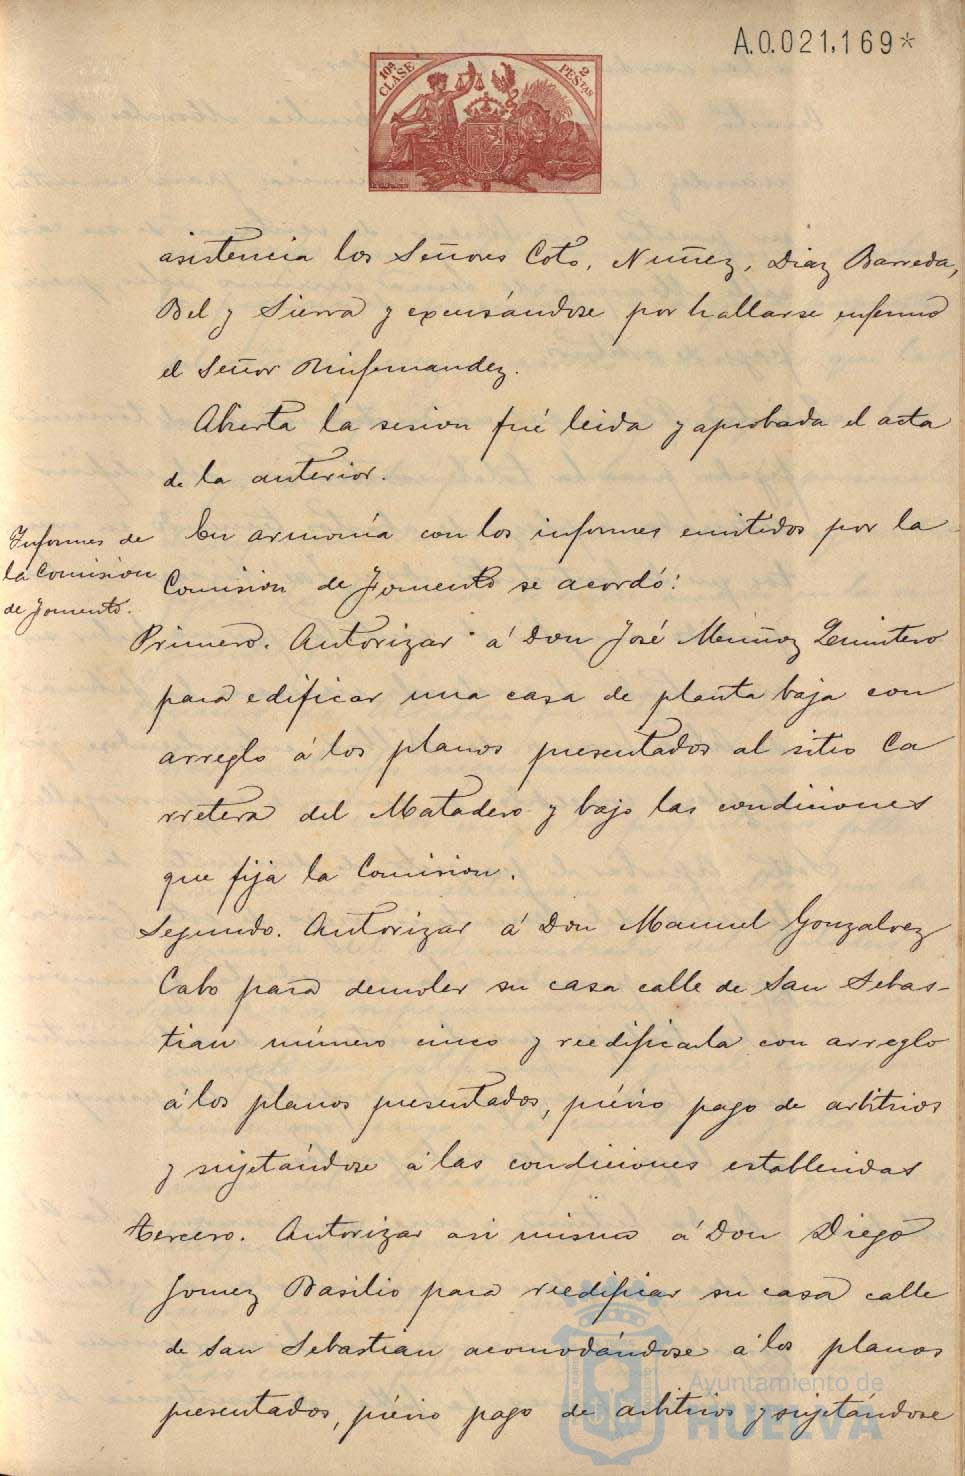 A.0.021,169*
10ª CLASE
2 PESTAS
asistencia los Señores Coto, Nuñez, Diaz Barreda,
Bel y Sierra y excusándose por hallarse enfermo
el Señor Rinfernandez.
Abierta la sesion fué leida y aprobada el acta
de la anterior.
Informes de
la Comision
de Fomento.
En armonía con los informes emitidos por la
Comision de Fomento se acordó:
Primero. Autorizar á Don José Muñoz Quintero
para edificar una casa de planta baja con
arreglo á los planos presentados al sitio Ca
rretera del Matadero y bajo las condiciones
que fija la Comision.
Segundo. Autorizar á Don Manuel Gonzalvez
Cabo para demoler su casa calle de San Sebas-
tian número cinco y reedificarla con arreglo
á los planos presentados, prévio pago de arbitrios
y sujetándose á las condiciones establecidas
Tercero. Autorizar asi mismo á Don Diego
Gomez Basilio para reedificar su casa calle
de San Sebastian acomodándose á los planos
presentados, prévio pago de arbitrios y sujetándose
Ayuntamiento de
HUELVA